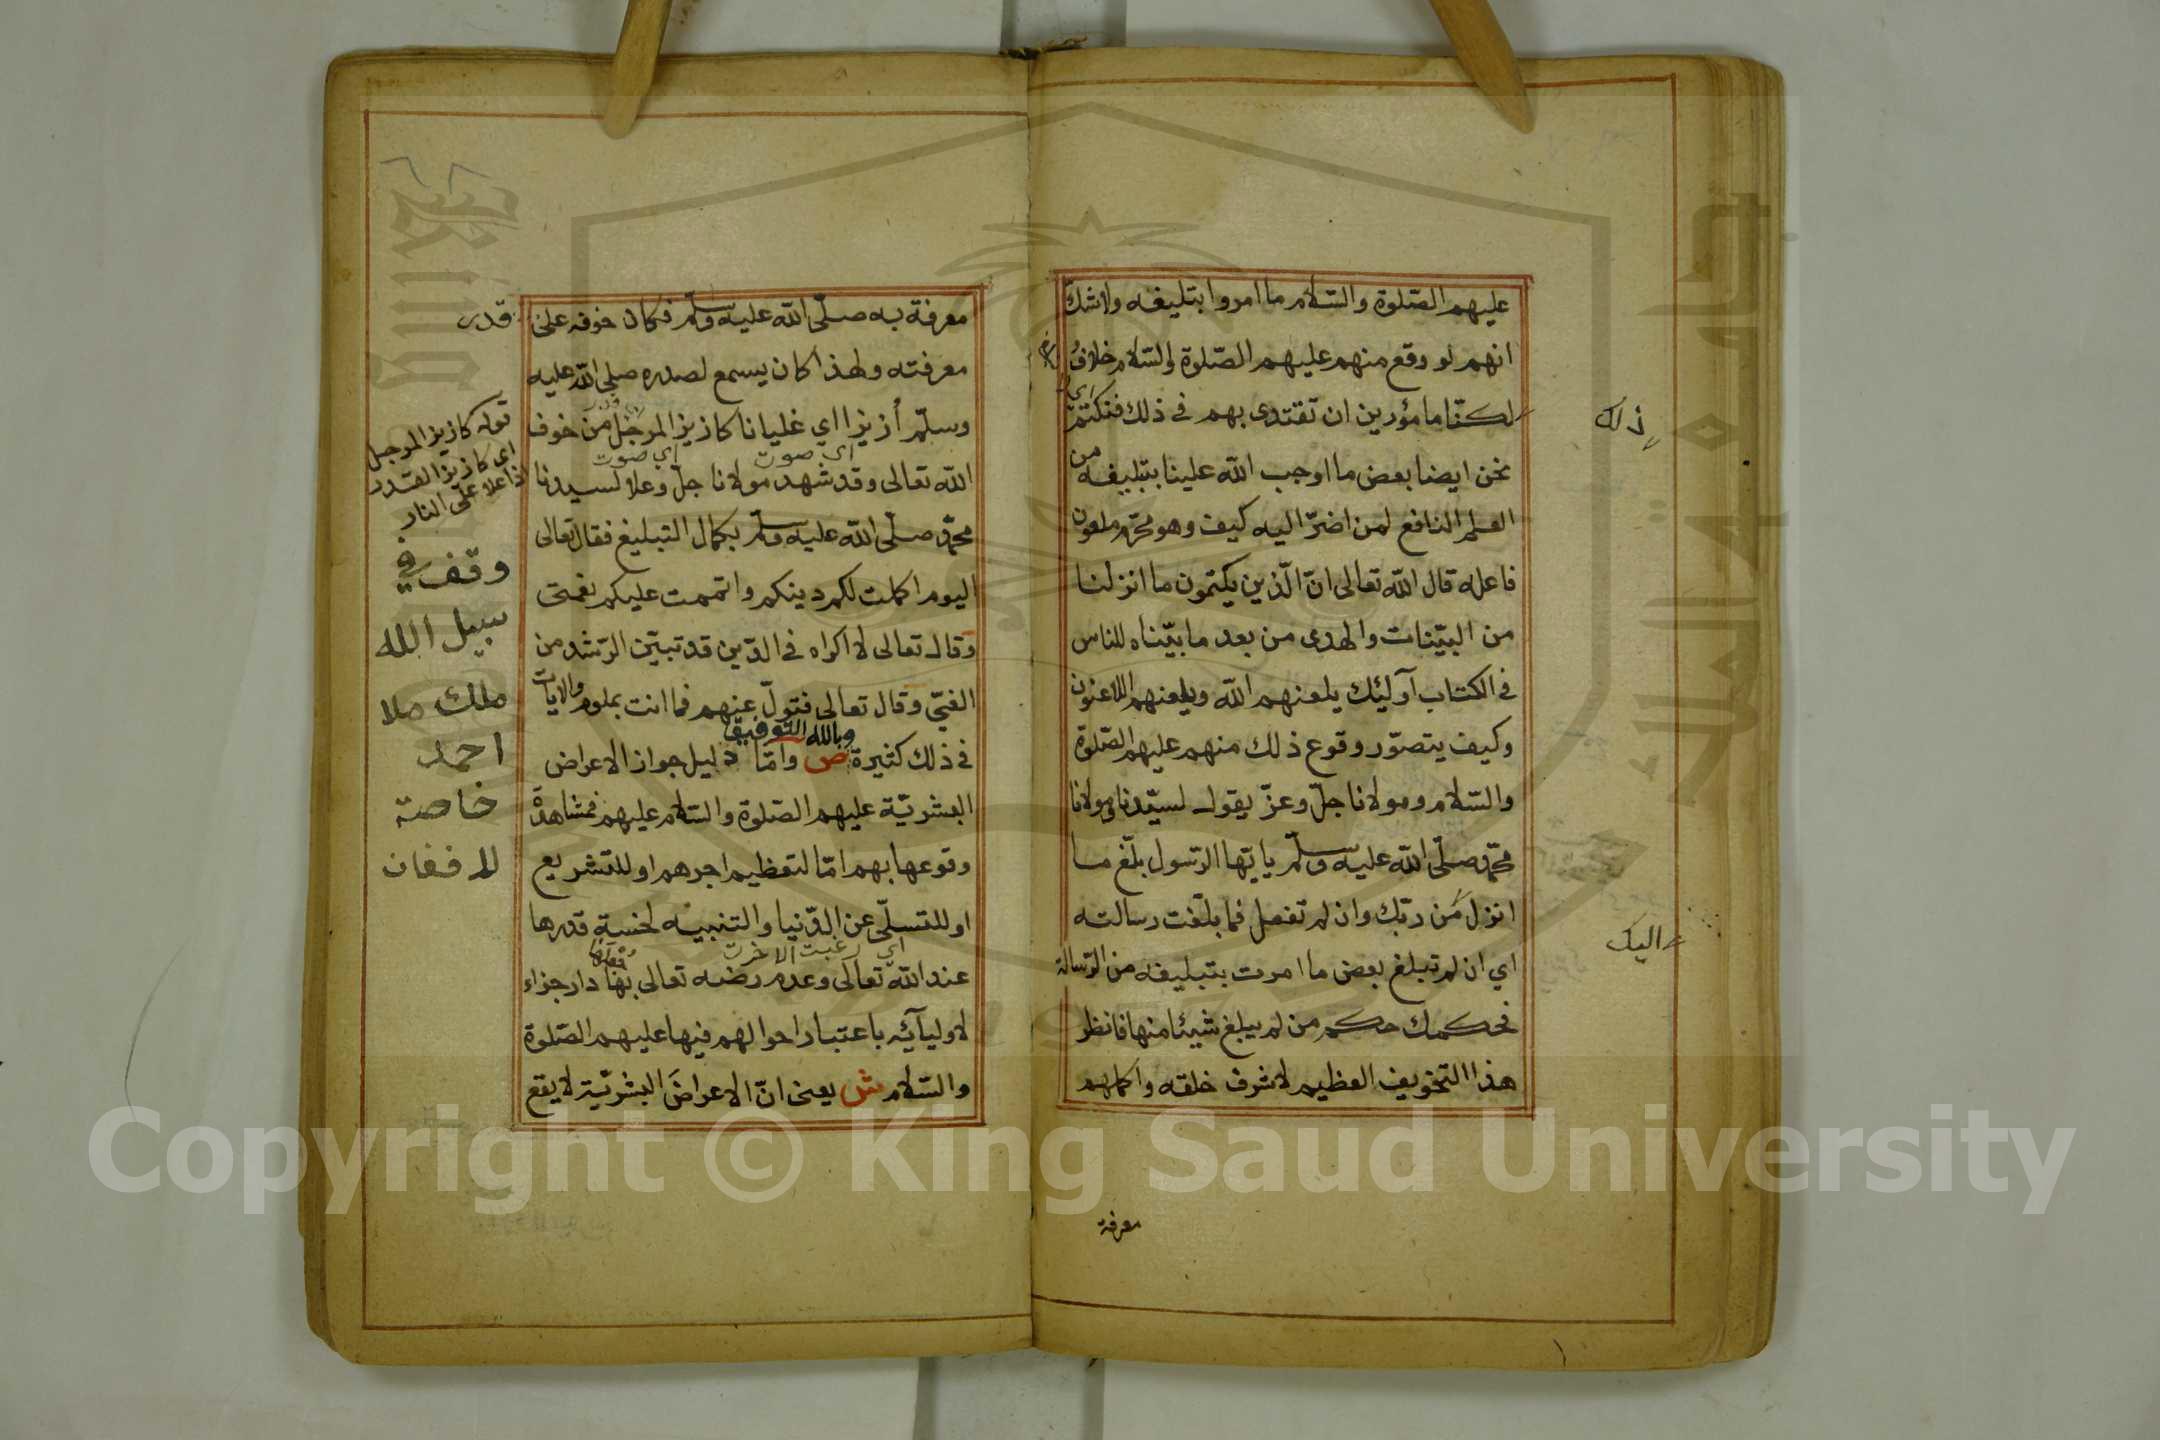 عليهم الصّلوة والسّلام ما امروا بتليغه ولا شكّ
انهم لو وقع منهم عليهم الصّلوة والسّلام خلاف
لكنّا مامؤرين ان تقتدى بهم فى ذلك فنكتم
نحن ايضا بعض ما اوجب الله علينا بتبليغه من
العلم النافع لمن اضرّ اليه كيف وهو محرّم ملعون
فاعله قال الله تعالى انّ الّذين يكتمون ما انزلنا
من البيّنات والهدى من بعد ما بيّناه للناس
فى الكتاب آولئك يلعنهم الله ويلعنهم اللاعنون
وكيف يتصوّر وقوع ذلك منهم عليهم الصّلوة
والسّلام ومولانا جلّ وعزّ يقول لسيّدنا ومولانا
محمّد صلّى الله عليه وسلّم يايّها الرّسول بلّغ ما
انزل من ربّك وان لم تفعل فما بلّغت رسالته
اي ان لم تبلغ بعض ما امرت بتبليغه من الرّسالة
فحكمك حكم من لم يبلغ شيئا منها فانظر
هذا التخويف العظيم لاشرف خلقه واكملهم
معرفة
ذلك
اليك
معرفة به صلّى الله عليه وسلّم فكان خوفه على
معرفته ولهذا كان يسمع لصدره صلى الله عليه
وسلّم أزيزا اي غليانا كازيز المرجل من خوف
اى صوت
اي صوت
الله تعالى وقد شهد مولانا جلّ وعلا لسيدنا
محمّد صلّى الله عليه وسلّم بكمال التبليغ فقال تعالى
اليوم اكملت لكم دينكم واتممت عليكم نعمتى
وقال تعالى لا اكراه فى الدّين قد تبيّن الرّشد من
الغىّ وقال تعالى فتولّ عنهم فما انت بملوم والايات
وبالله التّوفيق
فى ذلك كثيرة ص وامّا دليل جواز الاعراض
البشريّة عليهم الصّلوة والسّلام عليهم فمشاهدة
وقوعها بهم امّا لتعظيم اجرهم او للتشريع
او للتسلّى عن الدّنيا والتنبيه لخسة قدرها
اي رغبت الاخرت
عند الله تعالى وعدم رضه تعالى بها دار جزاء
لاوليآئه باعتبار احوالهم فيها عليهم الصّلوة
والسّلام ش يعنى انّ الاعراض البشريّة لا يقع
قدر
قوله كازيز المرجل
اى كازيز القدر
اذا غلا على النار
وقف في
سبيل الله
ملك ملا
احمد
خاصة
Copyright © King Saud University